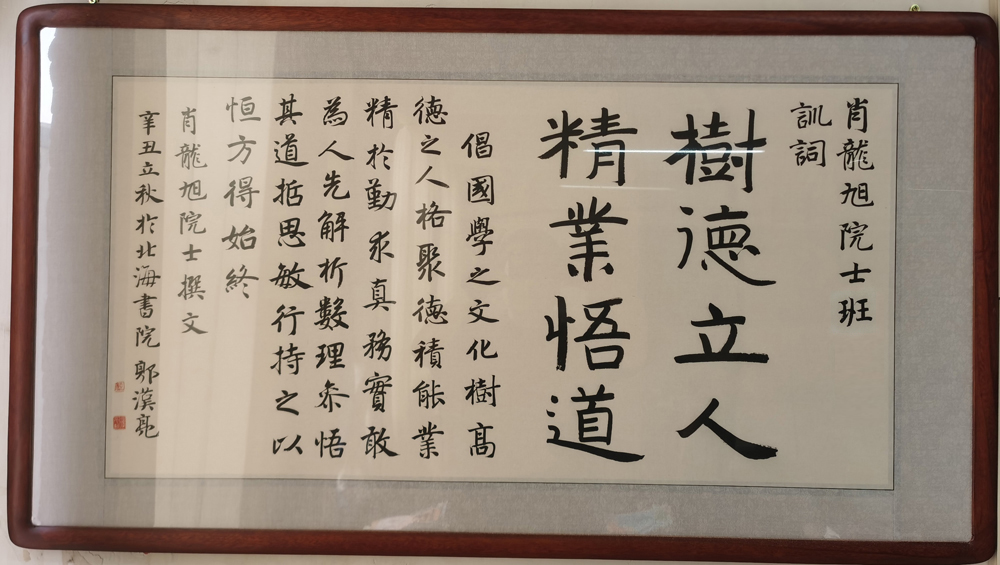 肖龍旭院士班
訓詞
樹德立人
精業悟道
倡國學之文化樹高
德之人格聚德積能業
精於勤求真務實敢
為人先解析數理參悟
其道哲思敏行持之以
恒方得始終
肖龍旭院士撰文
辛丑立秋於北海書院鄭漢亮